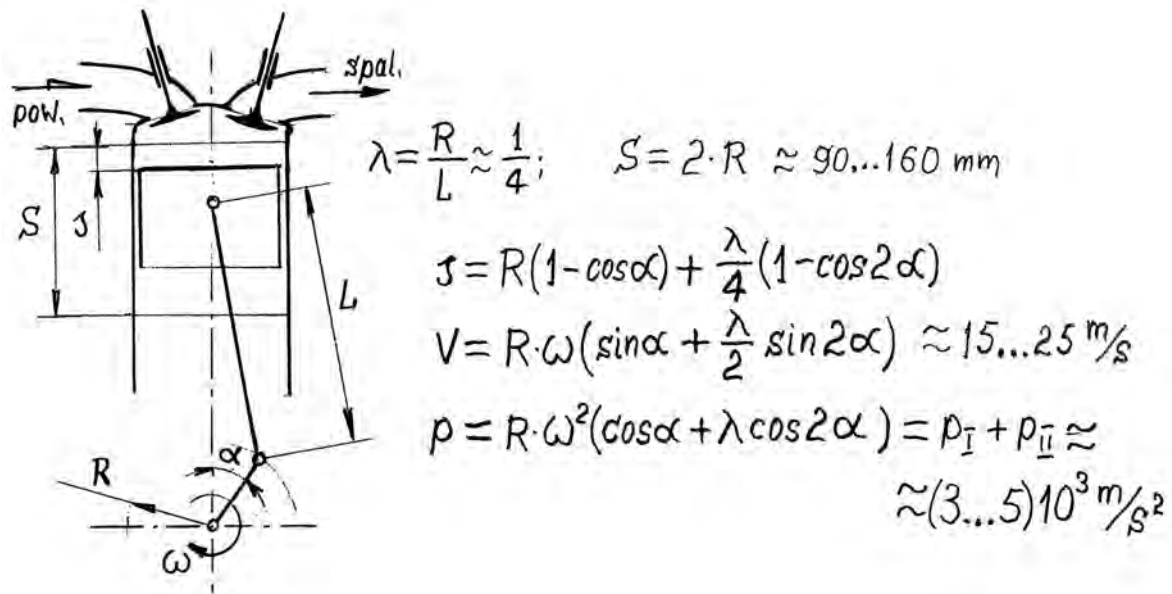 pow.
spal.
S
s
L
R
α
ω
λ = R/L ≈ 1/4; S = 2·R ≈ 90...160 mm
s = R(1-cosα) + λ/4 (1-cos2α)
V = R·ω(sinα + λ/2 sin2α) ≈ 15...25 m/s
p = R·ω²(cosα + λcos2α) = p_I + p_II ≈
≈ (3...5)10³ m/s²